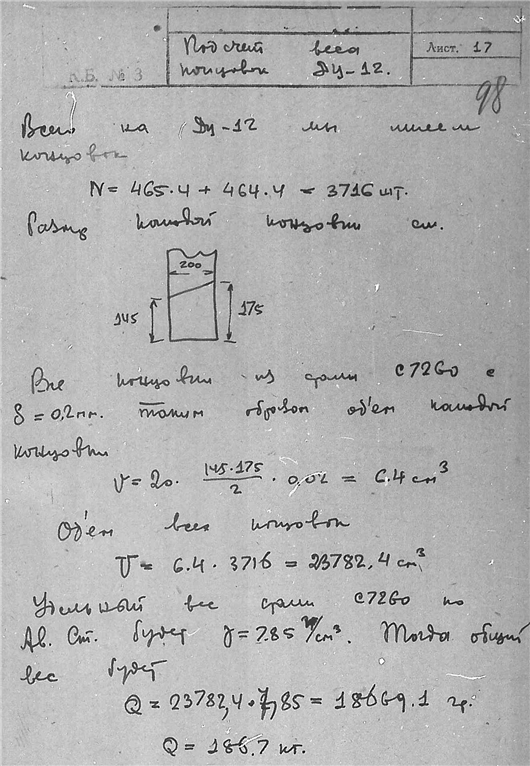 К.Б. № 3
Подсчет веса
концовок Ду-12.
Лист. 17
98
Всего на Ду-12 мы имеем
концовок
N = 465·4 + 464·4 = 3716 шт.
Размер каждой концовки см.
200
145
175
Все концовки из стали С7260 с
δ = 0,2 мм. таким образом об'ем каждой
концовки
V = 20 · 145·175/2 · 0,02 = 6.4 см³
Об'ем всех концовок
V = 6.4 · 3716 = 23782,4 см³
Удельный вес стали С7260 по
Ав. Ст. будет γ = 7.85 гр/см³. Тогда общий
вес будет
Q = 23782,4 · 7,85 = 18669.1 гр.
Q = 186.7 кг.